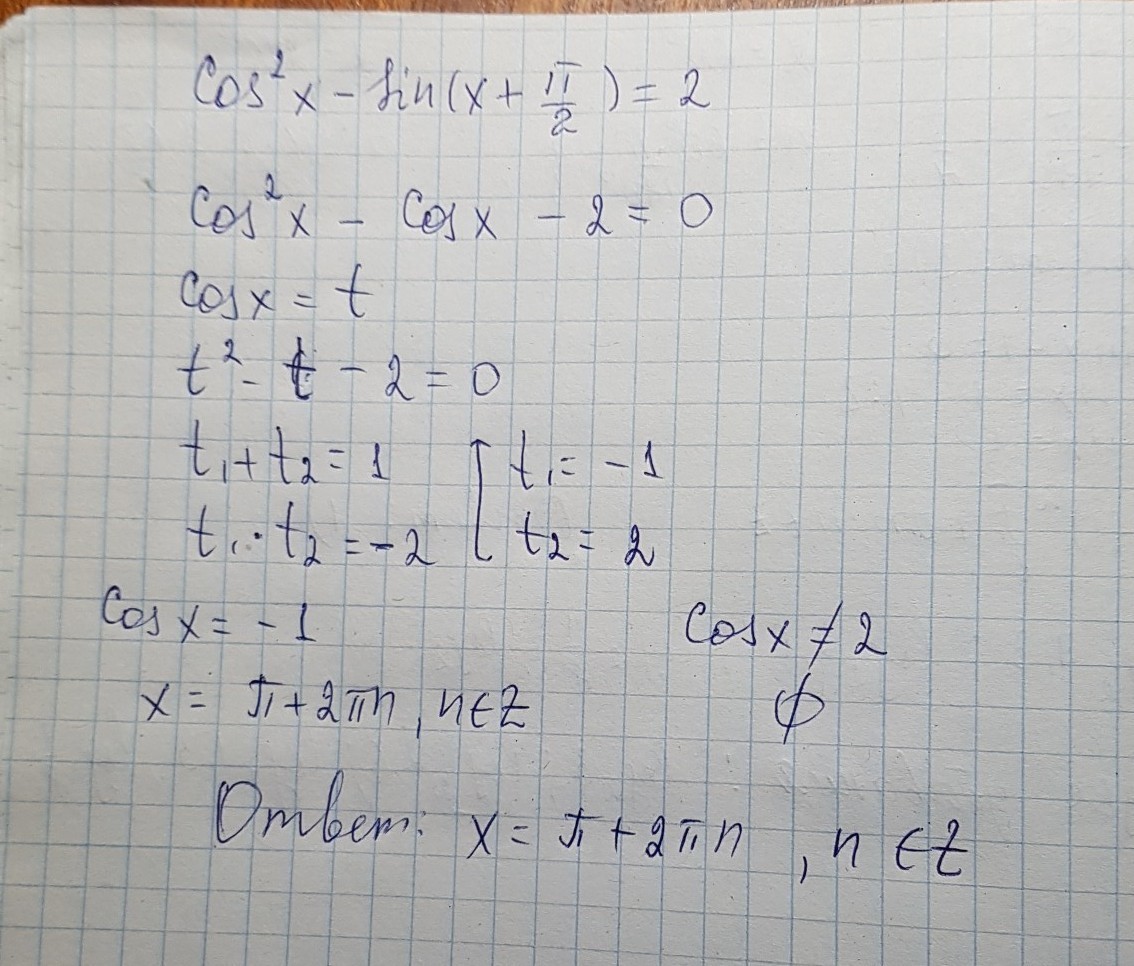 cos²x - sin(x + π/2) = 2
cos²x - cosx - 2 = 0
cosx = t
t² - t - 2 = 0
t₁ + t₂ = 1 [ t₁ = -1
t₁ · t₂ = -2 [ t₂ = 2
cosx = -1 cosx ≠ 2
x = π + 2πn, n∈Z ∅
Ответ: x = π + 2πn, n ∈ Z